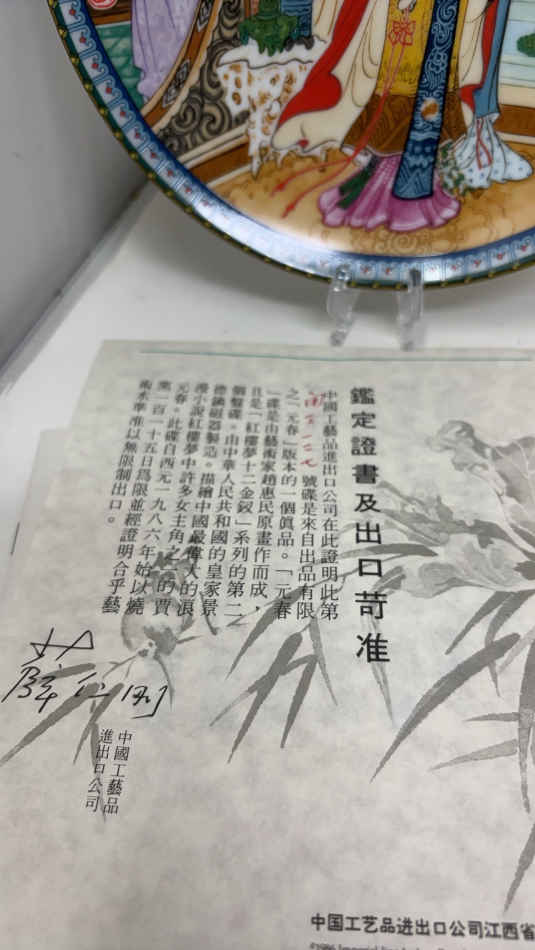 鑑定證書及出口苛准
中國工藝品進出口公司在此證明此第
號碟是來自出品有限
之「元春」版本的一個眞品。「元春
」碟是由藝術家趙惠民原畫作而成，
且是「紅樓夢十二金釵」系列的第二
個瓷碟。由中華人民共和國的皇家景
德鎮磁器製造。描繪中國最偉大的浪
漫小說紅樓夢中許多女主角之一的賈
元春。此碟自西元一九八六年始以燒
窯一百一十五日爲限並經證明合乎藝
術水準准以無限制出口。
中國工藝品
進出口公司
中国工艺品进出口公司江西省